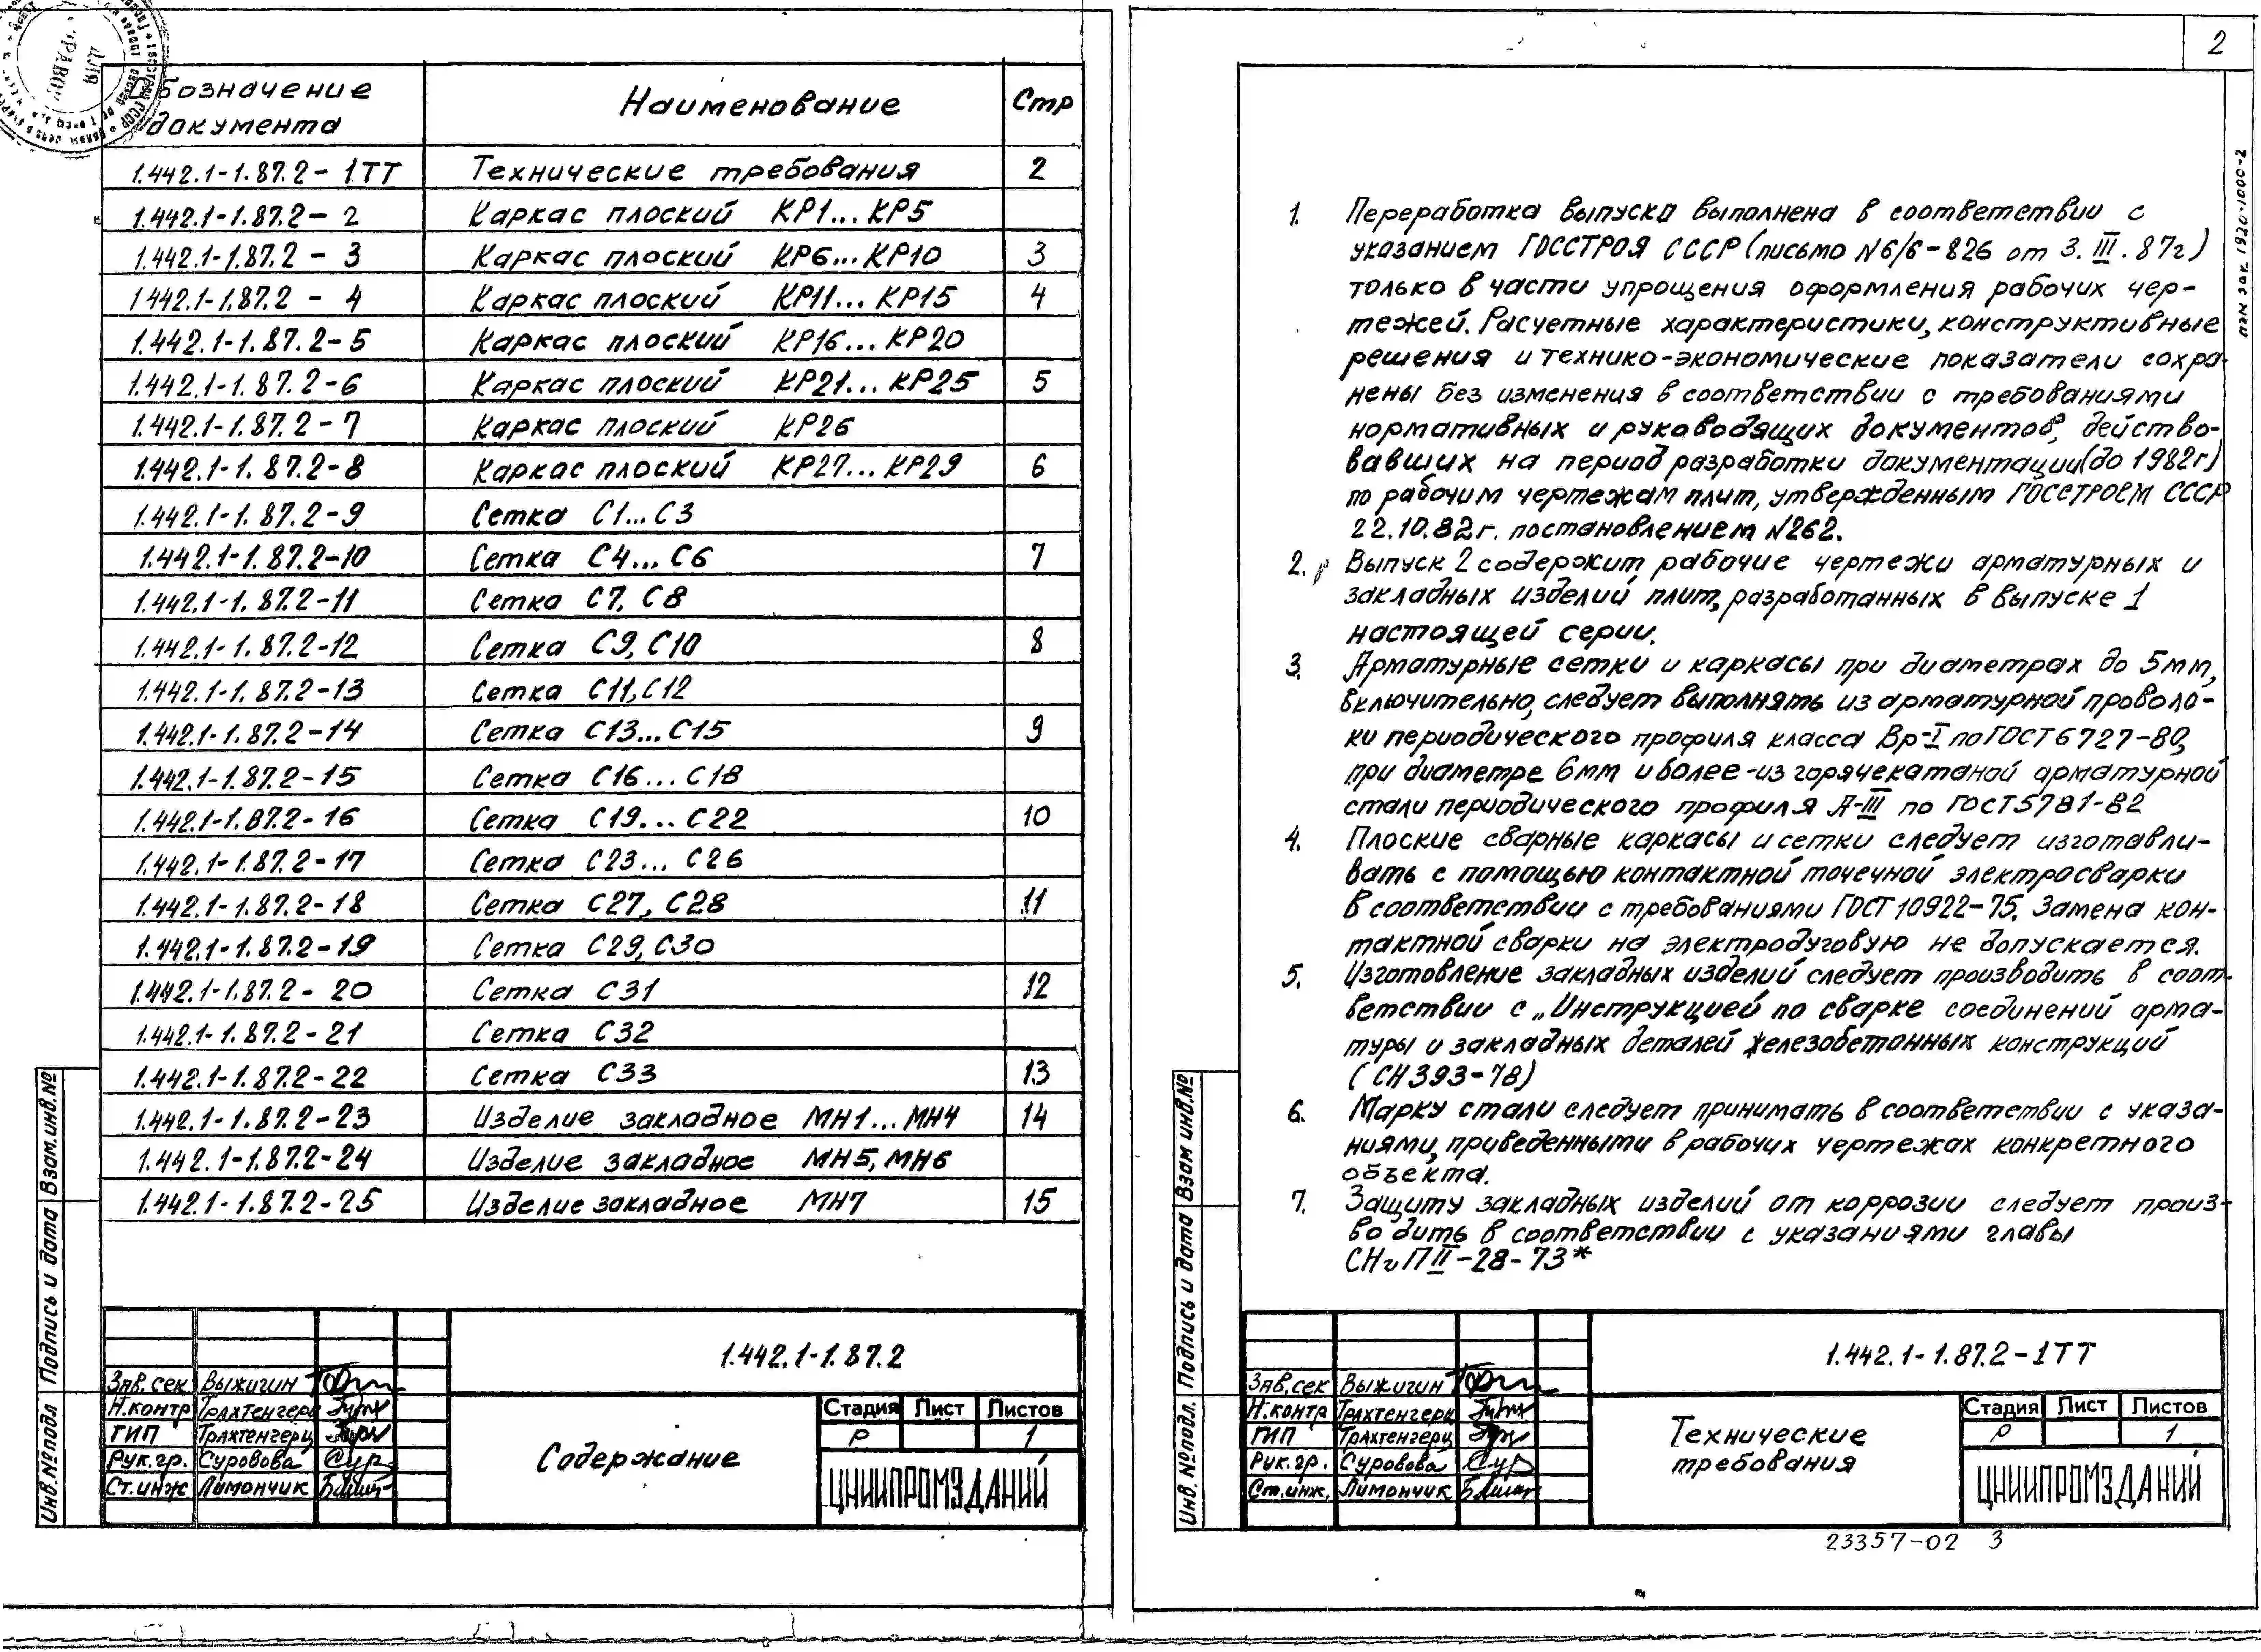 Обозначение документа | Наименование | Стр
1.442.1-1.87.2-1ТТ | Технические требования | 2
1.442.1-1.87.2-2 | Каркас плоский КР1...КР5
1.442.1-1.87.2-3 | Каркас плоский КР6...КР10 | 3
1.442.1-1.87.2-4 | Каркас плоский КР11...КР15 | 4
1.442.1-1.87.2-5 | Каркас плоский КР16...КР20
1.442.1-1.87.2-6 | Каркас плоский КР21...КР25 | 5
1.442.1-1.87.2-7 | Каркас плоский КР26
1.442.1-1.87.2-8 | Каркас плоский КР27...КР29 | 6
1.442.1-1.87.2-9 | Сетка С1...С3
1.442.1-1.87.2-10 | Сетка С4...С6 | 7
1.442.1-1.87.2-11 | Сетка С7, С8
1.442.1-1.87.2-12 | Сетка С9, С10 | 8
1.442.1-1.87.2-13 | Сетка С11, С12
1.442.1-1.87.2-14 | Сетка С13...С15 | 9
1.442.1-1.87.2-15 | Сетка С16...С18
1.442.1-1.87.2-16 | Сетка С19...С22 | 10
1.442.1-1.87.2-17 | Сетка С23...С26
1.442.1-1.87.2-18 | Сетка С27, С28 | 11
1.442.1-1.87.2-19 | Сетка С29, С30
1.442.1-1.87.2-20 | Сетка С31 | 12
1.442.1-1.87.2-21 | Сетка С32
1.442.1-1.87.2-22 | Сетка С33 | 13
1.442.1-1.87.2-23 | Изделие закладное МН1...МН4 | 14
1.442.1-1.87.2-24 | Изделие закладное МН5, МН6
1.442.1-1.87.2-25 | Изделие закладное МН7 | 15
Инв.№подл Подпись и дата Взам.инв.№
1.442.1-1.87.2
Зав.сек Выжигин
Н.контр Трахтенгерц
ГИП Трахтенгерц
Рук.гр. Суровова
Ст.инж Лимончик
Содержание
Стадия Лист Листов
Р 1
ЦНИИПРОМЗДАНИЙ
2
пэм зак. 1920-1000-2
1. Переработка выпуска выполнена в соответствии с
указанием ГОССТРОЯ СССР (письмо №6/6-826 от 3.III.87г)
только в части упрощения оформления рабочих чер-
тежей. Расчетные характеристики, конструктивные
решения и технико-экономические показатели сохра-
нены без изменения в соответствии с требованиями
нормативных и руководящих документов, действо-
вавших на период разработки документации (до 1982г)
по рабочим чертежам плит, утвержденным ГОССТРОЕМ СССР
22.10.82г. постановлением №262.
2. Выпуск 2 содержит рабочие чертежи арматурных и
закладных изделий плит, разработанных в выпуске 1
настоящей серии.
3. Арматурные сетки и каркасы при диаметрах до 5мм,
включительно, следует выполнять из арматурной проволо-
ки периодического профиля класса Вр-I по ГОСТ 6727-80,
при диаметре 6мм и более - из горячекатаной арматурной
стали периодического профиля А-III по ГОСТ 5781-82
4. Плоские сварные каркасы и сетки следует изготавли-
вать с помощью контактной точечной электросварки
в соответствии с требованиями ГОСТ 10922-75. Замена кон-
тактной сварки на электродуговую не допускается.
5. Изготовление закладных изделий следует производить в соот-
ветствии с „Инструкцией по сварке соединений арма-
туры и закладных деталей железобетонных конструкций
(СН 393-78)
6. Марку стали следует принимать в соответствии с указа-
ниями, приведенными в рабочих чертежах конкретного
объекта.
7. Защиту закладных изделий от коррозии следует произ-
водить в соответствии с указаниями главы
СНиП II-28-73*
Инв.№подл. Подпись и дата Взам инв.№
1.442.1-1.87.2-1ТТ
Зав.сек Выжигин
Н.контр Трахтенгерц
ГИП Трахтенгерц
Рук.гр. Суровова
Ст.инж. Лимончик
Технические
требования
Стадия Лист Листов
Р 1
ЦНИИПРОМЗДАНИЙ
23357-02 3